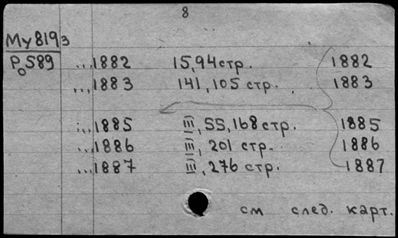 8
Му8193
Ро589 ...1882 15,94стр. 1882
...1883 141, 105 стр. 1883
...1885 III, 55, 168 стр. 1885
...1886 III, 201 стр. 1886
...1887 III, 276 стр. 1887
см след. карт.